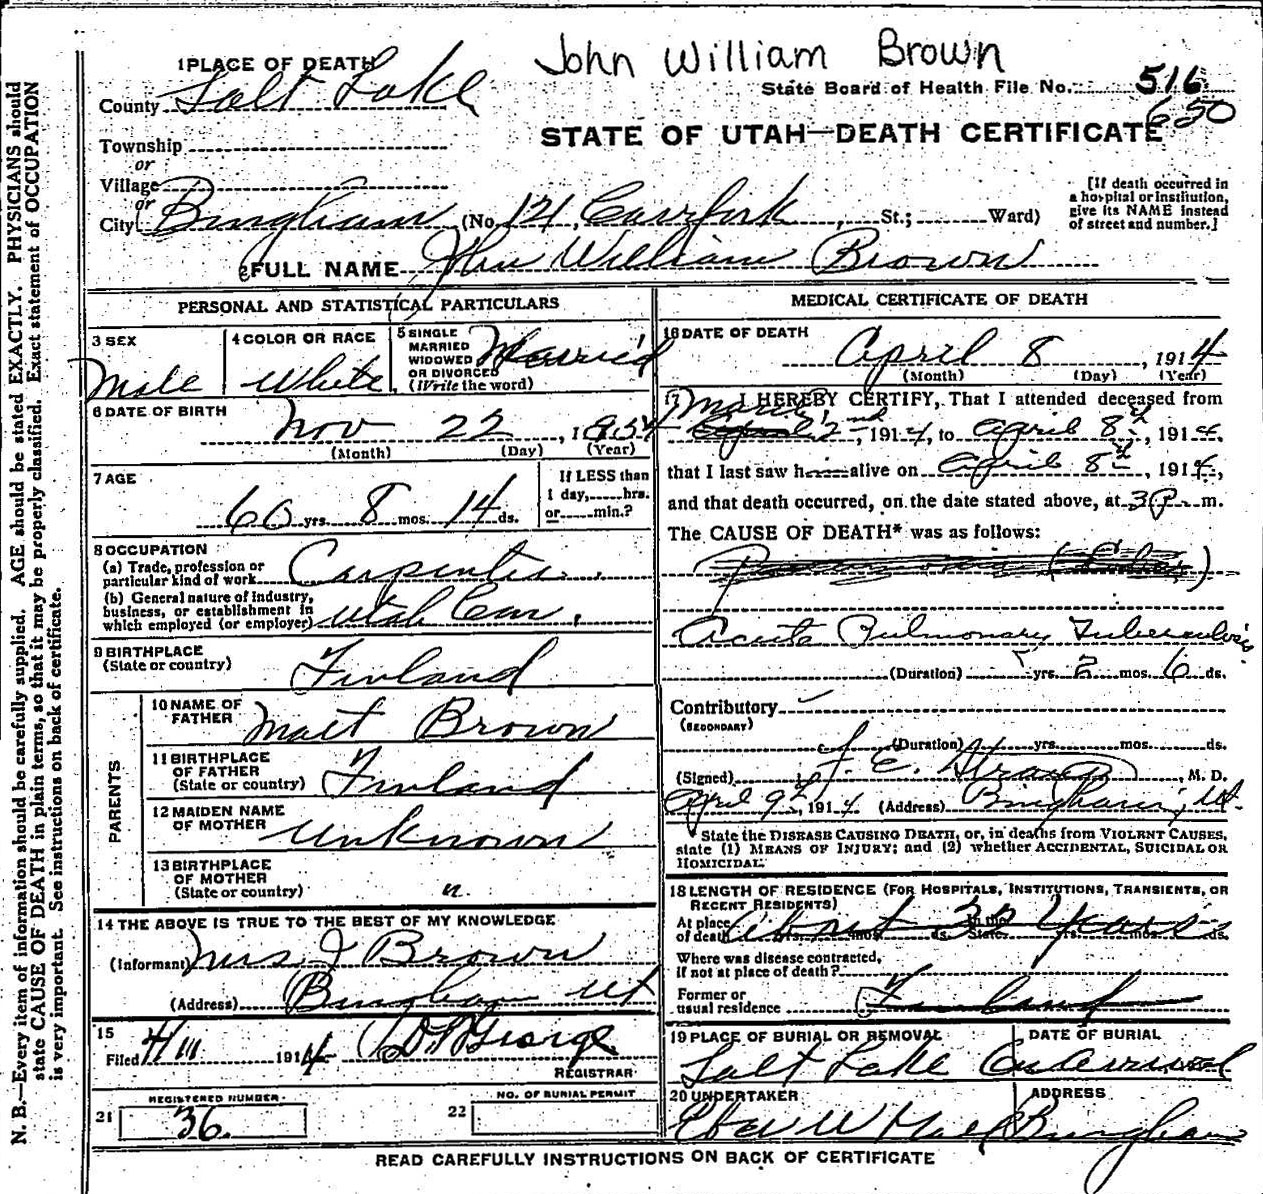 John William Brown
1 PLACE OF DEATH
County Salt Lake
State Board of Health File No. 516
650
STATE OF UTAH—DEATH CERTIFICATE
Township
or
Village
or
City Bingham (No. 121, Carrfork, St.; Ward)
[If death occurred in a hospital or institution, give its NAME instead of street and number.]
2 FULL NAME John William Brown
PERSONAL AND STATISTICAL PARTICULARS
3 SEX
Male
4 COLOR OR RACE
White
5 SINGLE
MARRIED
WIDOWED
OR DIVORCED
(Write the word)
Married
6 DATE OF BIRTH
Nov 22, 1854
(Month) (Day) (Year)
7 AGE
60 yrs. 8 mos. 14 ds.
If LESS than
1 day, hrs.
or min.?
8 OCCUPATION
(a) Trade, profession or
particular kind of work Carpenter
(b) General nature of industry,
business, or establishment in
which employed (or employer) Utah Con.
9 BIRTHPLACE
(State or country)
Finland
PARENTS
10 NAME OF
FATHER
Matt Brown
11 BIRTHPLACE
OF FATHER
(State or country)
Finland
12 MAIDEN NAME
OF MOTHER
Unknown
13 BIRTHPLACE
OF MOTHER
(State or country)
"
14 THE ABOVE IS TRUE TO THE BEST OF MY KNOWLEDGE
(Informant) Mrs J Brown
(Address) Bingham Ut
15
Filed 4/11 1914
REGISTRAR
21
REGISTERED NUMBER
36.
22
NO. OF BURIAL PERMIT
MEDICAL CERTIFICATE OF DEATH
16 DATE OF DEATH
April 8, 1914
(Month) (Day) (Year)
17 I HEREBY CERTIFY, That I attended deceased from
March 2nd, 1914, to April 8th, 1914,
that I last saw h alive on April 8th, 1914,
and that death occurred, on the date stated above, at 3 P. m.
The CAUSE OF DEATH* was as follows:
Acute Pulmonary Tuberculosis
(Duration) yrs. 2 mos. 6 ds.
Contributory
(SECONDARY)
(Duration) yrs. mos. ds.
(Signed) F. E. Straup, M. D.
April 9th, 1914 (Address) Bingham, Ut.
*State the DISEASE CAUSING DEATH, or, in deaths from VIOLENT CAUSES,
state (1) MEANS OF INJURY; and (2) whether ACCIDENTAL, SUICIDAL OR
HOMICIDAL.
18 LENGTH OF RESIDENCE (FOR HOSPITALS, INSTITUTIONS, TRANSIENTS, OR
RECENT RESIDENTS)
At place
of death yrs. mos. ds. In the State yrs. mos. ds.
About 32 Years
Where was disease contracted,
if not at place of death?
Former or
usual residence Finland
19 PLACE OF BURIAL OR REMOVAL
DATE OF BURIAL
Salt Lake
20 UNDERTAKER
ADDRESS
Eber W Hall Bingham
READ CAREFULLY INSTRUCTIONS ON BACK OF CERTIFICATE
N. B.—Every item of information should be carefully supplied. AGE should be stated EXACTLY. PHYSICIANS should
state CAUSE OF DEATH in plain terms, so that it may be properly classified. Exact statement of OCCUPATION
is very important. See instructions on back of certificate.